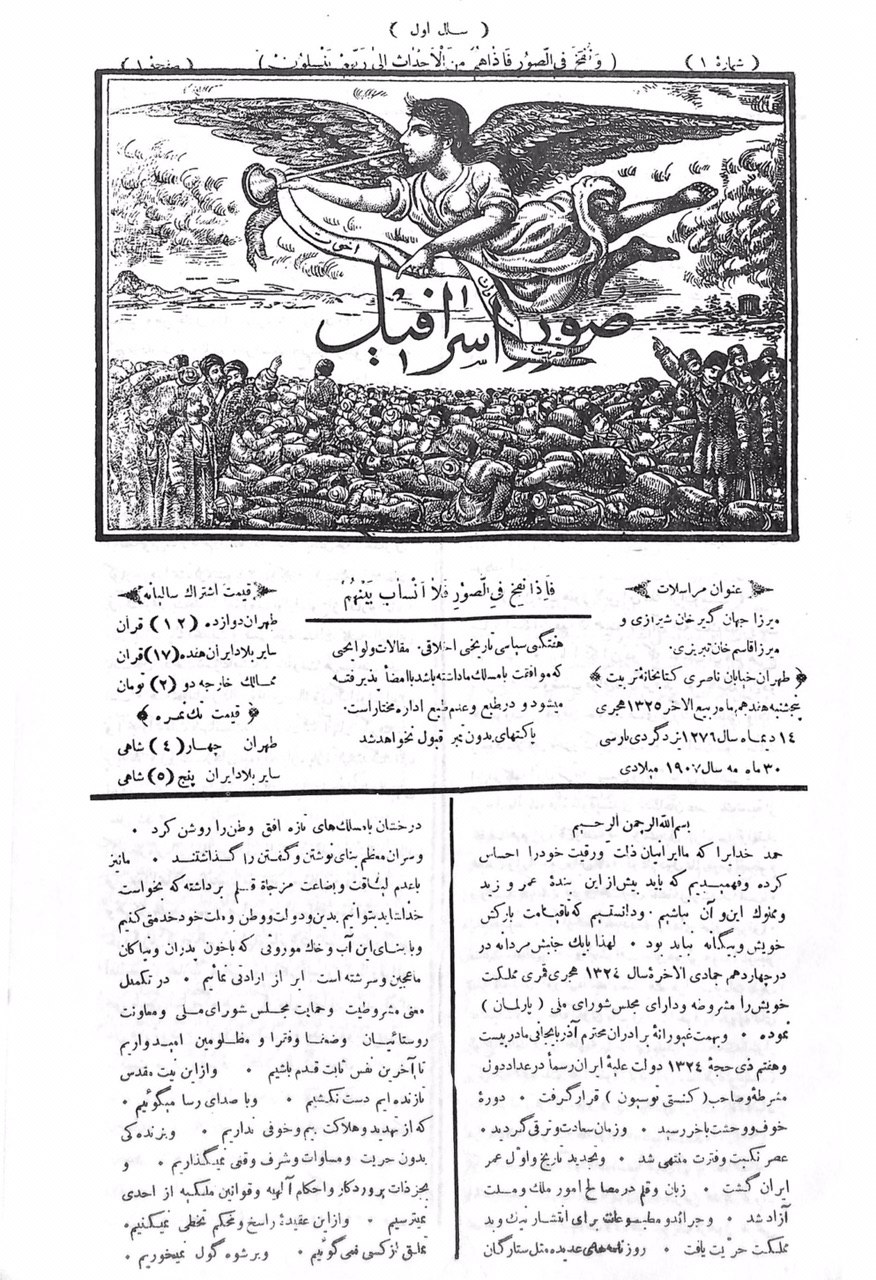 ( سال اول )
( شمارهٔ ۱ )
( وَنُفِخَ فِی الصُّورِ فَاِذاهُمْ مِنَ الْاَجْدٰاثِ اِلیٰ رَبِّهِمْ یَنْسِلُونَ )
( صفحهٔ ۱ )
اخوت
حریت
صور اسرافیل
عنوان مراسلات
میرزا جهان گیر خان شیرازی و
میرزا قاسم خان تبریزی.
﴿ طهران خیابان ناصری کتابخانهٔ تربیت ﴾
پنجشنبه هفدهم ماه ربیع الاخر ۱۳۲۵ هجری
۱۴ دیماه سال ۱۲۷۶ یزدگردی پارسی
۳۰ ماه مه سال ۱۹۰۷ میلادی
فَاِذا نُفِخَ فِی الصُّورِ فَلاٰ اَنْسابَ بَیْنَهُمْ
هفتگی سیاسی تاریخی اخلاقی. مقالات و لوایحی
که موافقت با مسلک ما داشته باشد با امضأ پذیرفته
میشود و در طبع و عدم طبع اداره مختار است.
پاکتهای بدون تمبر قبول نخواهد شد
قیمت اشتراک سالیانه
طهران دوازده (۱۲) قران
سایر بلاد ایران هفده (۱۷) قران
ممالک خارجه دو (۲) تومان
﴿ قیمت تک نمره ﴾
طهران چهار (۴) شاهی
سایر بلاد ایران پنج (۵) شاهی
بسم الله الرحمن الرحیم
حمد خدایرا که ما ایرانیان ذلت و رقیت خود را احساس
کرده و فهمیدیم که باید بیش از این بندهٔ عمرو و زید
و مملوک این و آن نباشیم . و دانستیم که تا قیامت بارکش
خویش و بیگانه نباید بود • لهذا با یک جنبش مردانه در
در چهاردهم جمادی الاخرهٔ سال ۱۳۲۴ هجری قمری مملکت
خویش را مشروطه و دارای مجلس شورای ملی ( پارلمان )
نموده • و بهمت غیورانهٔ برادران محترم آذربایجانی ما در بیست
و هفتم ذی حجهٔ ۱۳۲۴ دولت علیهٔ ایران رسماً در عداد دول
مشرطه و صاحب ( کنستی توسیون ) قرار گرفت • دورهٔ
خوف و وحشت بآخر رسید • و زمان سعادت و ترقی گردید •
عصر نکبت و فترت منتهی شد • و تجدید تاریخ و اول عمر
ایران گشت • زبان و قلم در مصالح امور ملک و ملت
آزاد شد • و جرائد و مطبوعات برای انتشار نیک و بد
مملکت حریت یافت • روزنامه‌های عدیده مثل ستارگان
درخشان با مسلک‌های تازه افق وطن را روشن کرد •
و سران معظم بنای نوشتن و گفتن را گذاشتند • ما نیز
با عدم لیاقت و بضاعت مزجاة قلم برداشته که بخواست
خدا شاید بتوانیم بدین و دولت و وطن و ملت خود خدمتی کنیم
و با بنای این آب و خاک موروثی که با خون پدران و نیاکان
ما عجین و سرشته است ابراز ارادتی نمائیم • در تکمیل
معنی مشروطیت و حمایت مجلس شورای ملی و معاونت
روستائیان و ضعفا و فقرا و مظلومین امیدواریم
تا آخرین نفس ثابت قدم باشیم • و از این نیت مقدس
تا زنده ایم دست نکشیم • و با صدای رسا میگوئیم •
که از تهدید و هلاکت بیم و خوفی نداریم • و بزندهٔ کی
بدون حریت و مساوات و شرف وقعی نمیگذاریم • و
بجز ذات پروردکار و احکام آلهیه و قوانین ملکیه از احدی
نمیترسیم • و از این عقیدهٔ راسخ و محکم تخطی نمیکنیم •
تملق از کسی نمی گوئیم • و برشوه گول نمیخوریم •